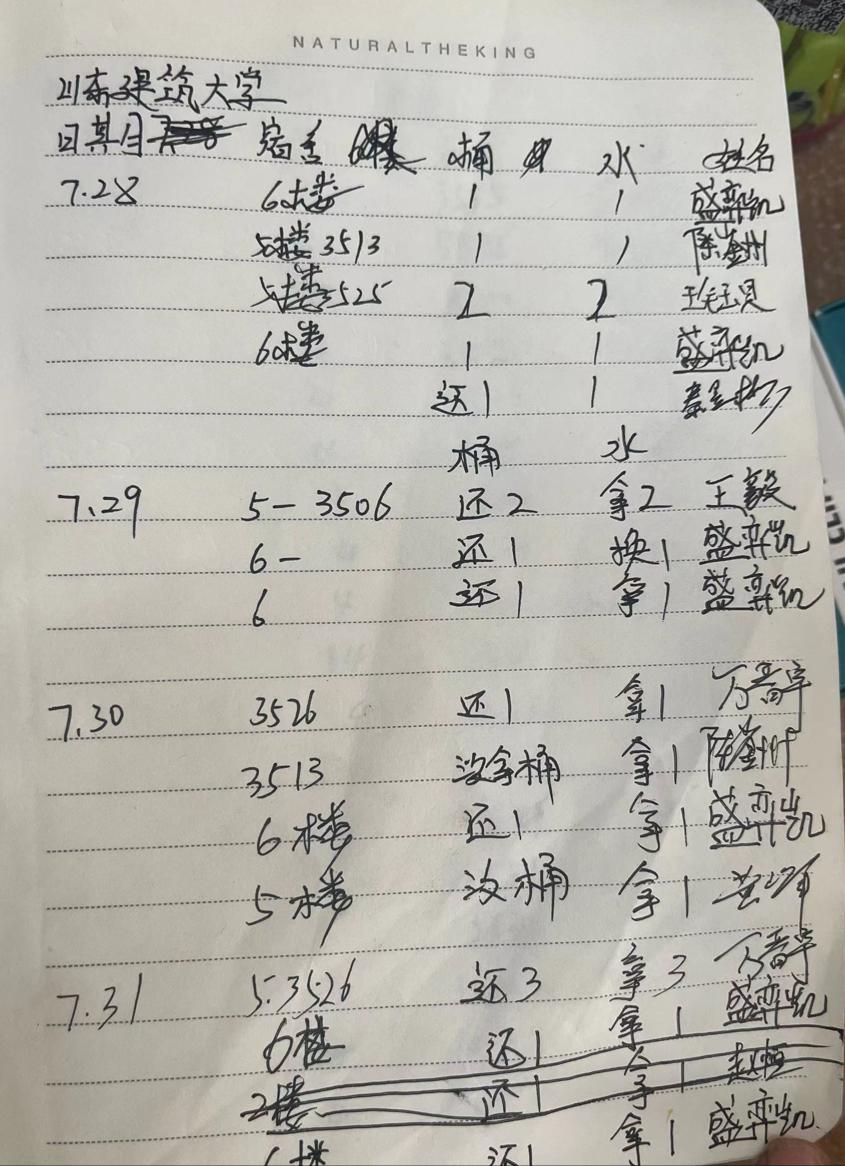 NATURALTHEKING
山东建筑大学
日期 宿舍 桶 水 姓名
7.28 6楼 1 1 盛弈凯
5楼3513 1 1 陈
5楼525 2 2
6楼 1 1 盛弈凯
还1 1
桶 水
7.29 5-3506 还2 拿2 王毅
6- 还1 换1 盛弈凯
6 还1 拿1 盛弈凯
7.30 3526 还1 拿1 万晋宇
3513 没拿桶 拿1 陈
6楼 还1 拿1 盛弈凯
5楼 没桶 拿1 黄
7.31 5.3526 还3 拿3 万晋宇
6楼 还1 拿1 盛弈凯
2楼 还1 拿1 赵恒
6楼 还1 拿1 盛弈凯